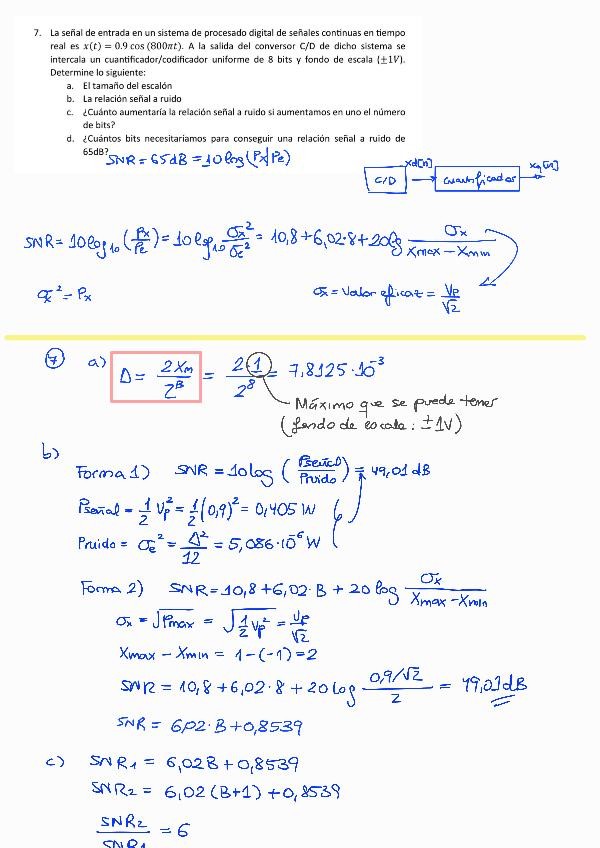 7. La señal de entrada en un sistema de procesado digital de señales continuas en tiempo
real es x(t) = 0.9 cos (800πt). A la salida del conversor C/D de dicho sistema se
intercala un cuantificador/codificador uniforme de 8 bits y fondo de escala (±1V).
Determine lo siguiente:
a. El tamaño del escalón
b. La relación señal a ruido
c. ¿Cuánto aumentaría la relación señal a ruido si aumentamos en uno el número
de bits?
d. ¿Cuántos bits necesitaríamos para conseguir una relación señal a ruido de
65dB?
SNR = 65dB = 10log(Px/Pe)
C/D xd[n] Cuantificador xq[n]
SNR = 10log10 (Px/Pe) = 10log10 σx²/σe² = 10,8 + 6,02·8 + 20log σx/(Xmax − Xmin)
σx² = Px
σx = Valor eficaz = Vp/√2
7 a) Δ = 2Xm/2^B = 2·1/2^8 = 7,8125·10^-3
Máximo que se puede tener
(fondo de escala: ±1V)
b)
Forma 1) SNR = 10log (Pseñal/Pruido) = 49,01 dB
Pseñal = 1/2 Vp² = 1/2 (0,9)² = 0,405 W
Pruido = σe² = Δ²/12 = 5,086·10^-6 W
Forma 2) SNR = 10,8 + 6,02·B + 20 log σx/(Xmax − Xmin)
σx = √Pmax = √(1/2 Vp²) = Vp/√2
Xmax − Xmin = 1 − (−1) = 2
SNR = 10,8 + 6,02·8 + 20log (0,9/√2)/2 = 49,01 dB
SNR = 6,02·B + 0,8539
c) SNR1 = 6,02B + 0,8539
SNR2 = 6,02 (B+1) + 0,8539
SNR2/SNR1 = 6